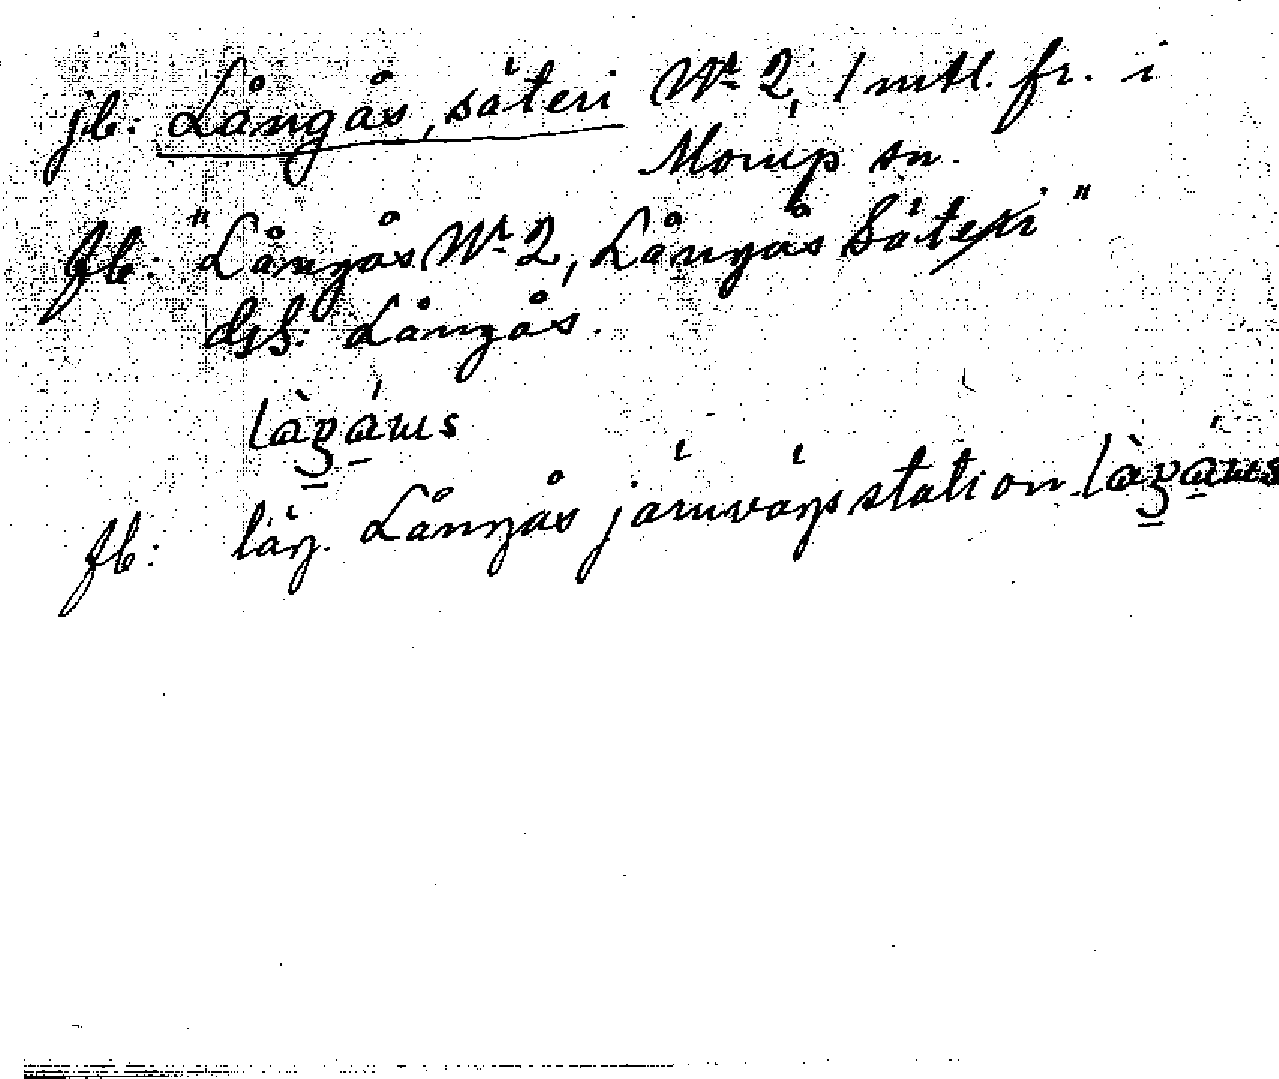 jb: Långås, säteri Nr 2, 1 mtl. fr. i
Morup sn.
fb: "Långås Nr 2, Långås Säteri"
dsb: Långås.
fb: läg. Långås järnvägsstation